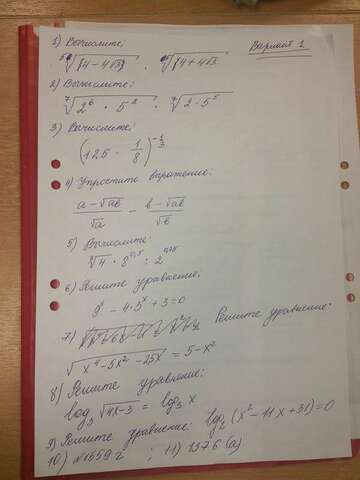 Вариант 1
1) Вычислите:
⁵√(4-4√3) · ⁵√(4+4√3)
2) Вычислите:
⁷√(2⁶ · 5²) · ⁷√(2 · 5⁵)
3) Вычислите:
(125 · 1/8)^(-1/3)
4) Упростите выражение:
(a-√ab)/√a - (b-√ab)/√b
5) Вычислите:
√4 · 8 : 2
6) Решите уравнение.
9ˣ - 4·3ˣ + 3 = 0
7) Решите уравнение:
√(x⁴-5x²-25x) = 5-x²
8) Решите уравнение:
log₃ √(4x-3) = log₃ x
9) Решите уравнение: log₂ (x²-11x+31)=0
10) №1559 г ; 11) 1376 (а)